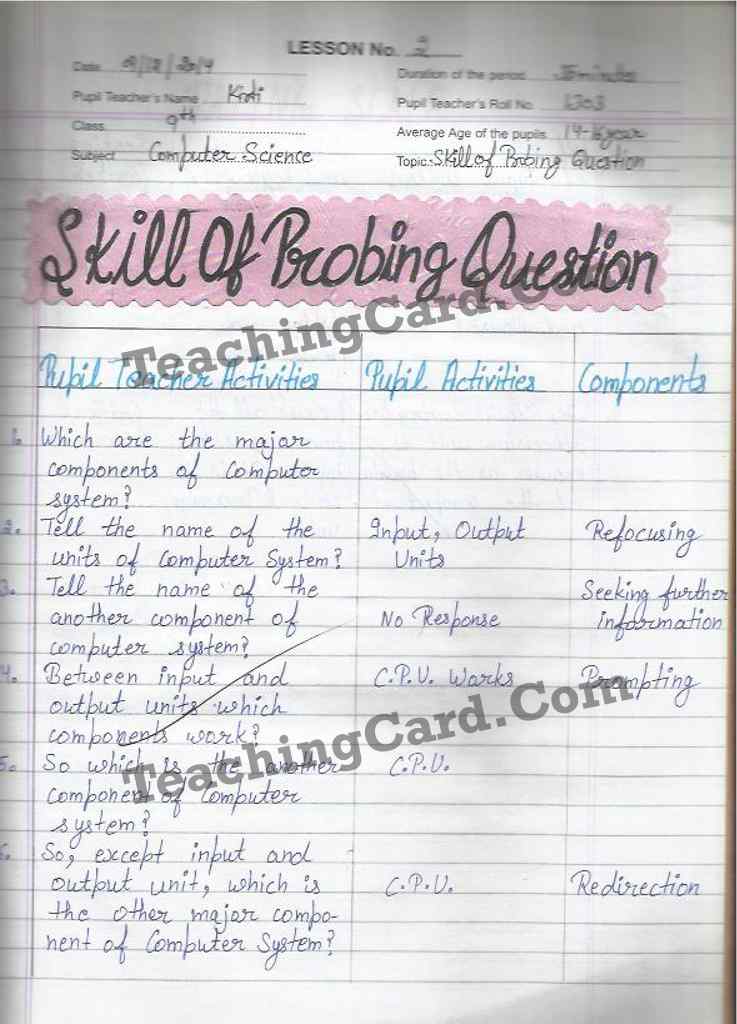 LESSON No. 2
Date 9/12/2014
Duration of the period 35 minutes
Pupil Teacher's Name Kirti
Pupil Teacher's Roll No. 1303
Class 9th
Average Age of the pupils 14-16 year
Subject Computer Science
Topic: Skill of Probing Question
Skill Of Probing Question
TeachingCard.Com
Pupil Teacher Activities Pupil Activities Components
1. Which are the major
components of Computer
system?
2. Tell the name of the Input, Output Refocusing
units of Computer System? Units
3. Tell the name of the Seeking further
another component of No Response information
computer system?
4. Between input and C.P.U. Works Prompting
output units which
components work?
TeachingCard.Com
5. So which is the another C.P.U.
component of Computer
system?
6. So, except input and
output unit, which is C.P.U. Redirection
the other major compo-
nent of Computer System?